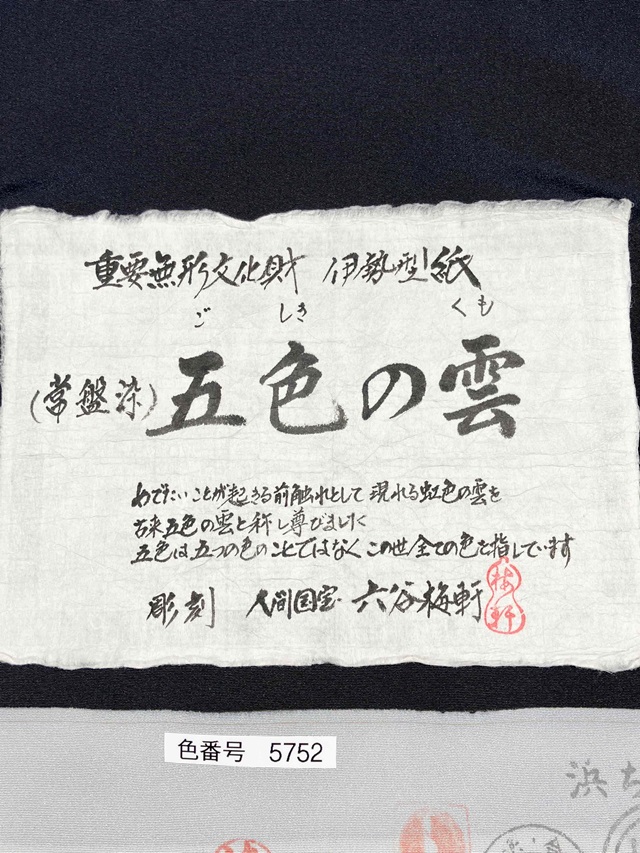 重要無形文化財 伊勢型紙
ご しき くも
(常盤染)五色の雲
めでたいことが起きる前触れとして現れる虹色の雲を
古来五色の雲と称し尊びました
五色は五つの色のことではなくこの世全ての色を指しています
彫刻 人間国宝 六谷梅軒
梅軒
色番号 5752
浜ち